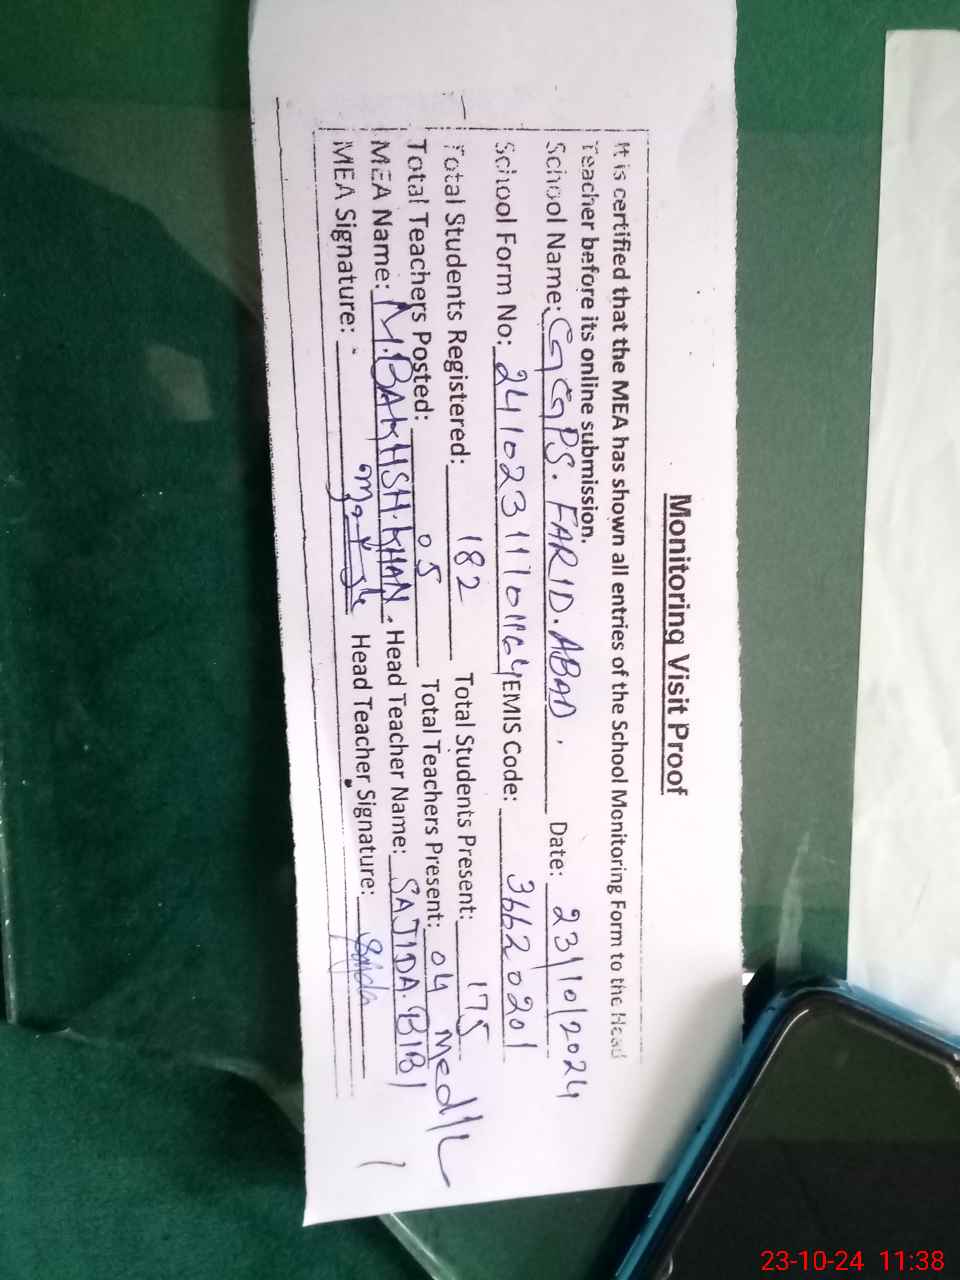 Monitoring Visit Proof
It is certified that the MEA has shown all entries of the School Monitoring Form to the Head
Teacher before its online submission.
School Name: GGPS. FARID. ABAD. Date: 23/10/2024
School Form No: 24102311701164 EMIS Code: 36620201
Total Students Registered: 182 Total Students Present: 175
Total Teachers Posted: 05 Total Teachers Present: 04 Med/L
MEA Name: M. BAKHSH. KHAN. Head Teacher Name: SAJIDA. BIBI
MEA Signature: Head Teacher Signature: Sajida
23-10-24 11:38